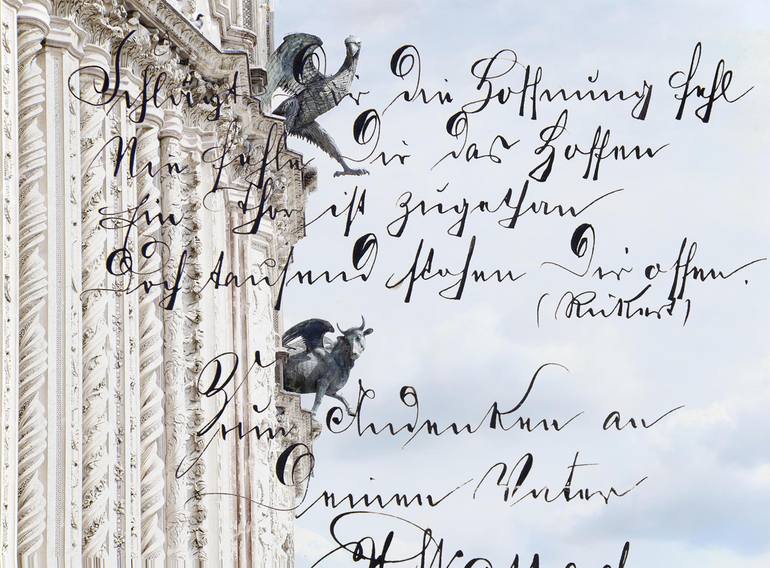 Schlägt Dir die Hoffnung fehl
Nie fehle Dir das Hoffen
Ein Thor ist zugethan
Doch tausend stehen Dir offen.
(Rükert)
Zum Andenken an
Deinen Vater